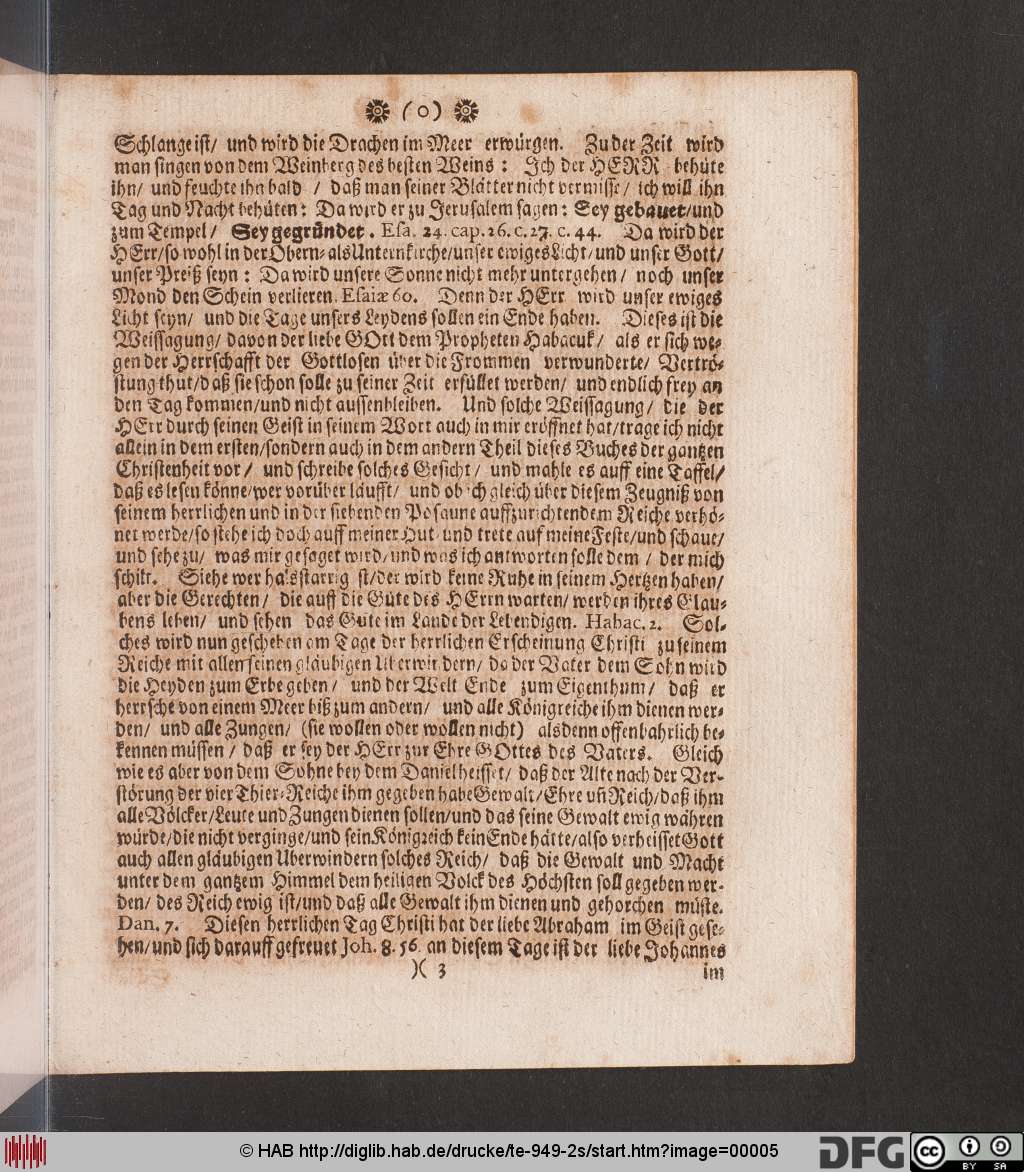 (o)
Schlange ist/ und wird die Drachen im Meer erwürgen. Zu der Zeit wird
man singen von dem Weinberg des besten Weins: Ich der HERR behüte
ihn/ und feuchte ihn bald / daß man seiner Blätter nicht vermisse/ ich will ihn
Tag und Nacht behüten: Da wird er zu Jerusalem sagen: Sey gebauet/und
zum Tempel/ Sey gegründet. Esa. 24. cap. 26. c. 27. c. 44. Da wird der
HErr/so wohl in der Obern- als Untern kirche/unser ewiges Licht/und unser Gott/
unser Preiß seyn: Da wird unsere Sonne nicht mehr untergehen/ noch unser
Mond den Schein verlieren. Esaiæ 60. Denn der HErr wird unser ewiges
Licht seyn/ und die Tage unsers Leydens sollen ein Ende haben. Dieses ist die
Weissagung/ davon der liebe GOtt dem Propheten Habacuk/ als er sich we-
gen der Herrschafft der Gottlosen über die Frommen verwunderte/ Vertrö-
stung thut/daß sie schon solle zu seiner Zeit erfüllet werden/ und endlich frey an
den Tag kommen/und nicht aussenbleiben. Und solche Weissagung/ die der
HErr durch seinen Geist in seinem Wort auch in mir eröffnet hat/trage ich nicht
allein in dem ersten/sondern auch in dem andern Theil dieses Buches der gantzen
Christenheit vor/ und schreibe solches Gesicht/ und mahle es auff eine Taffel/
daß es lesen könne/wer vorüber läufft/ und ob ich gleich über diesem Zeugniß von
seinem herrlichen und in der siebenden Posaune auffzurichtendem Reiche verhö-
net werde/so stehe ich doch auff meiner Hut/und trete auf meine Feste/und schaue/
und sehe zu/ was mir gesaget wird/und was ich antworten solle dem / der mich
schikt. Siehe wer halsstarrig ist/der wird keine Ruhe in seinem Hertzen haben/
aber die Gerechten/ die auff die Güte des HErrn warten/ werden ihres Glau-
bens leben/ und sehen das Gute im Lande der Lebendigen. Habac. 2. Sol-
ches wird nun geschehen am Tage der herrlichen Erscheinung Christi zu seinem
Reiche mit allen seinen gläubigen Uberwindern/ da der Vater dem Sohn wird
die Heyden zum Erbe geben/ und der Welt Ende zum Eigenthum/ daß er
herrsche von einem Meer biß zum andern/ und alle Königreiche ihm dienen wer-
den/ und alle Zungen/ (sie wollen oder wollen nicht) alsdenn offenbahrlich be-
kennen müssen/ daß er sey der HErr zur Ehre GOttes des Vaters. Gleich
wie es aber von dem Sohne bey dem Daniel heisset/ daß der Alte nach der Ver-
störung der vier Thier-Reiche ihm gegeben habe Gewalt/Ehre uñ Reich/daß ihm
alle Völcker/Leute und Zungen dienen sollen/und das seine Gewalt ewig währen
würde/die nicht verginge/und sein Königreich kein Ende hätte/also verheisset Gott
auch allen gläubigen Uberwindern solches Reich/ daß die Gewalt und Macht
unter dem gantzem Himmel dem heiligen Volck des Höchsten soll gegeben wer-
den/ des Reich ewig ist/und daß alle Gewalt ihm dienen und gehorchen müste.
Dan. 7. Diesen herrlichen Tag Christi hat der liebe Abraham im Geist gese-
hen/und sich darauff gefreuet Joh. 8. 56. an diesem Tage ist der liebe Johannes
)( 3 im
© HAB http://diglib.hab.de/drucke/te-949-2s/start.htm?image=00005
DFG
cc BY SA